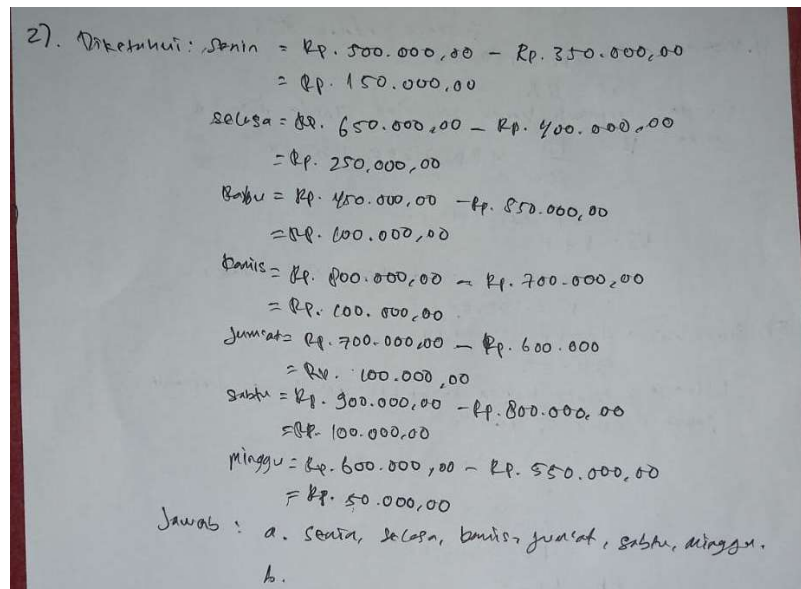 2). Diketahui : Senin = Rp. 500.000,00 - Rp. 350.000,00
= Rp. 150.000,00
Selasa = Rp. 650.000,00 - Rp. 400.000,00
= Rp. 250.000,00
Rabu = Rp. 450.000,00 - Rp. 850.000,00
= Rp. 100.000,00
Kamis = Rp. 800.000,00 - Rp. 700.000,00
= Rp. 100.000,00
Jumeat = Rp. 700.000,00 - Rp. 600.000
= Rp. 100.000,00
Sabtu = Rp. 900.000,00 - Rp. 800.000,00
= Rp. 100.000,00
Minggu = Rp. 600.000,00 - Rp. 550.000,00
= Rp. 50.000,00
Jawab : a. Senin, Selasa, kamis, jumeat, sabtu, minggu.
b.